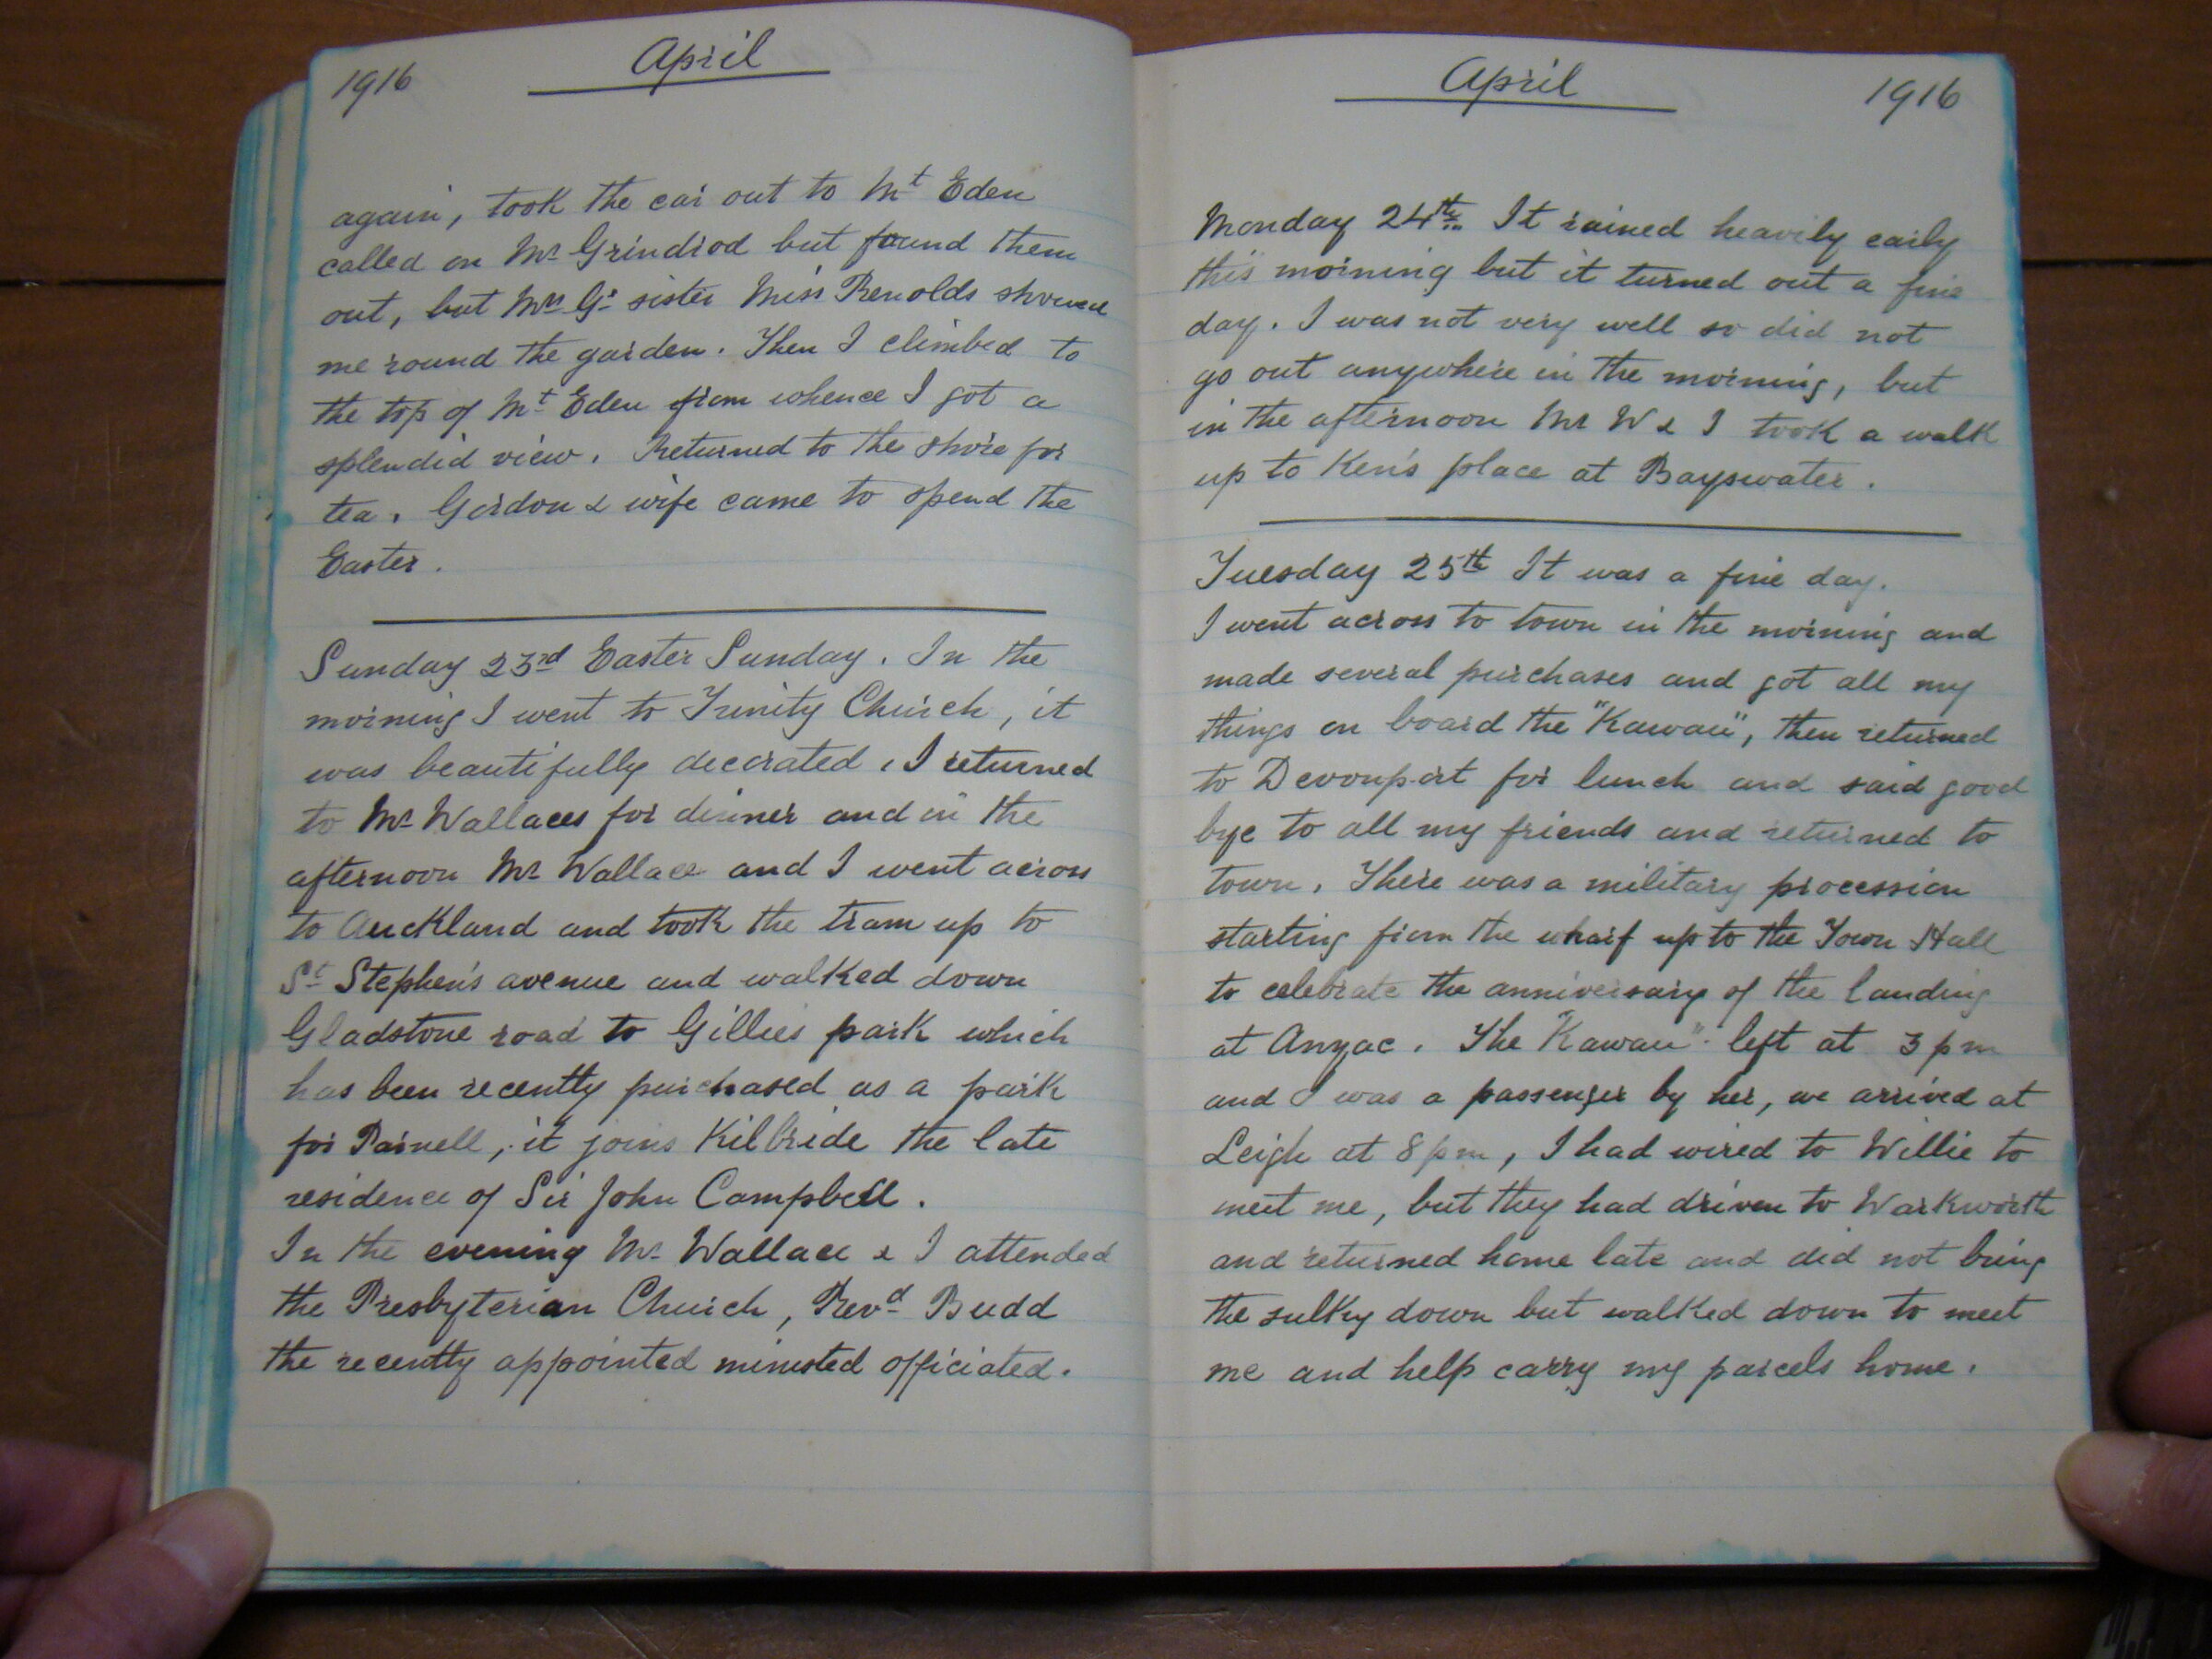 1916 April
again, took the car out to Mt Eden
called on Mr Grindrod but found them
out, but Mrs G's sister Miss Renolds showed
me round the garden. Then I climbed to
the top of Mt Eden from whence I got a
splendid view. Returned to the shore for
tea. Gordon & wife came to spend the
Easter.
Sunday 23rd Easter Sunday. In the
morning I went to Trinity Church, it
was beautifully decorated, I returned
to Mr Wallaces for dinner and in the
afternoon Mr Wallace and I went across
to Auckland and took the tram up to
St Stephen's avenue and walked down
Gladstone road to Gillies park which
has been recently purchased as a park
for Parnell, it joins Kilbride the late
residence of Sir John Campbell.
In the evening Mr Wallace & I attended
the Presbyterian Church, Revd Budd
the recently appointed ministed officiated.
April 1916
Monday 24th It rained heavily early
this morning but it turned out a fine
day. I was not very well so did not
go out anywhere in the morning, but
in the afternoon Mr W & I took a walk
up to Ken's place at Bayswater.
Tuesday 25th It was a fine day.
I went across to town in the morning and
made several purchases and got all my
things on board the "Kawau", then returned
to Devonport for lunch and said good
bye to all my friends and returned to
town. There was a military procession
starting from the wharf up to the Town Hall
to celebrate the anniversary of the landing
at Anzac. The "Kawau" left at 3 pm
and I was a passenger by her, we arrived at
Leigh at 8 pm, I had wired to Willie to
meet me, but they had driven to Warkworth
and returned home late and did not bring
the sulky down but walked down to meet
me and help carry my parcels home.